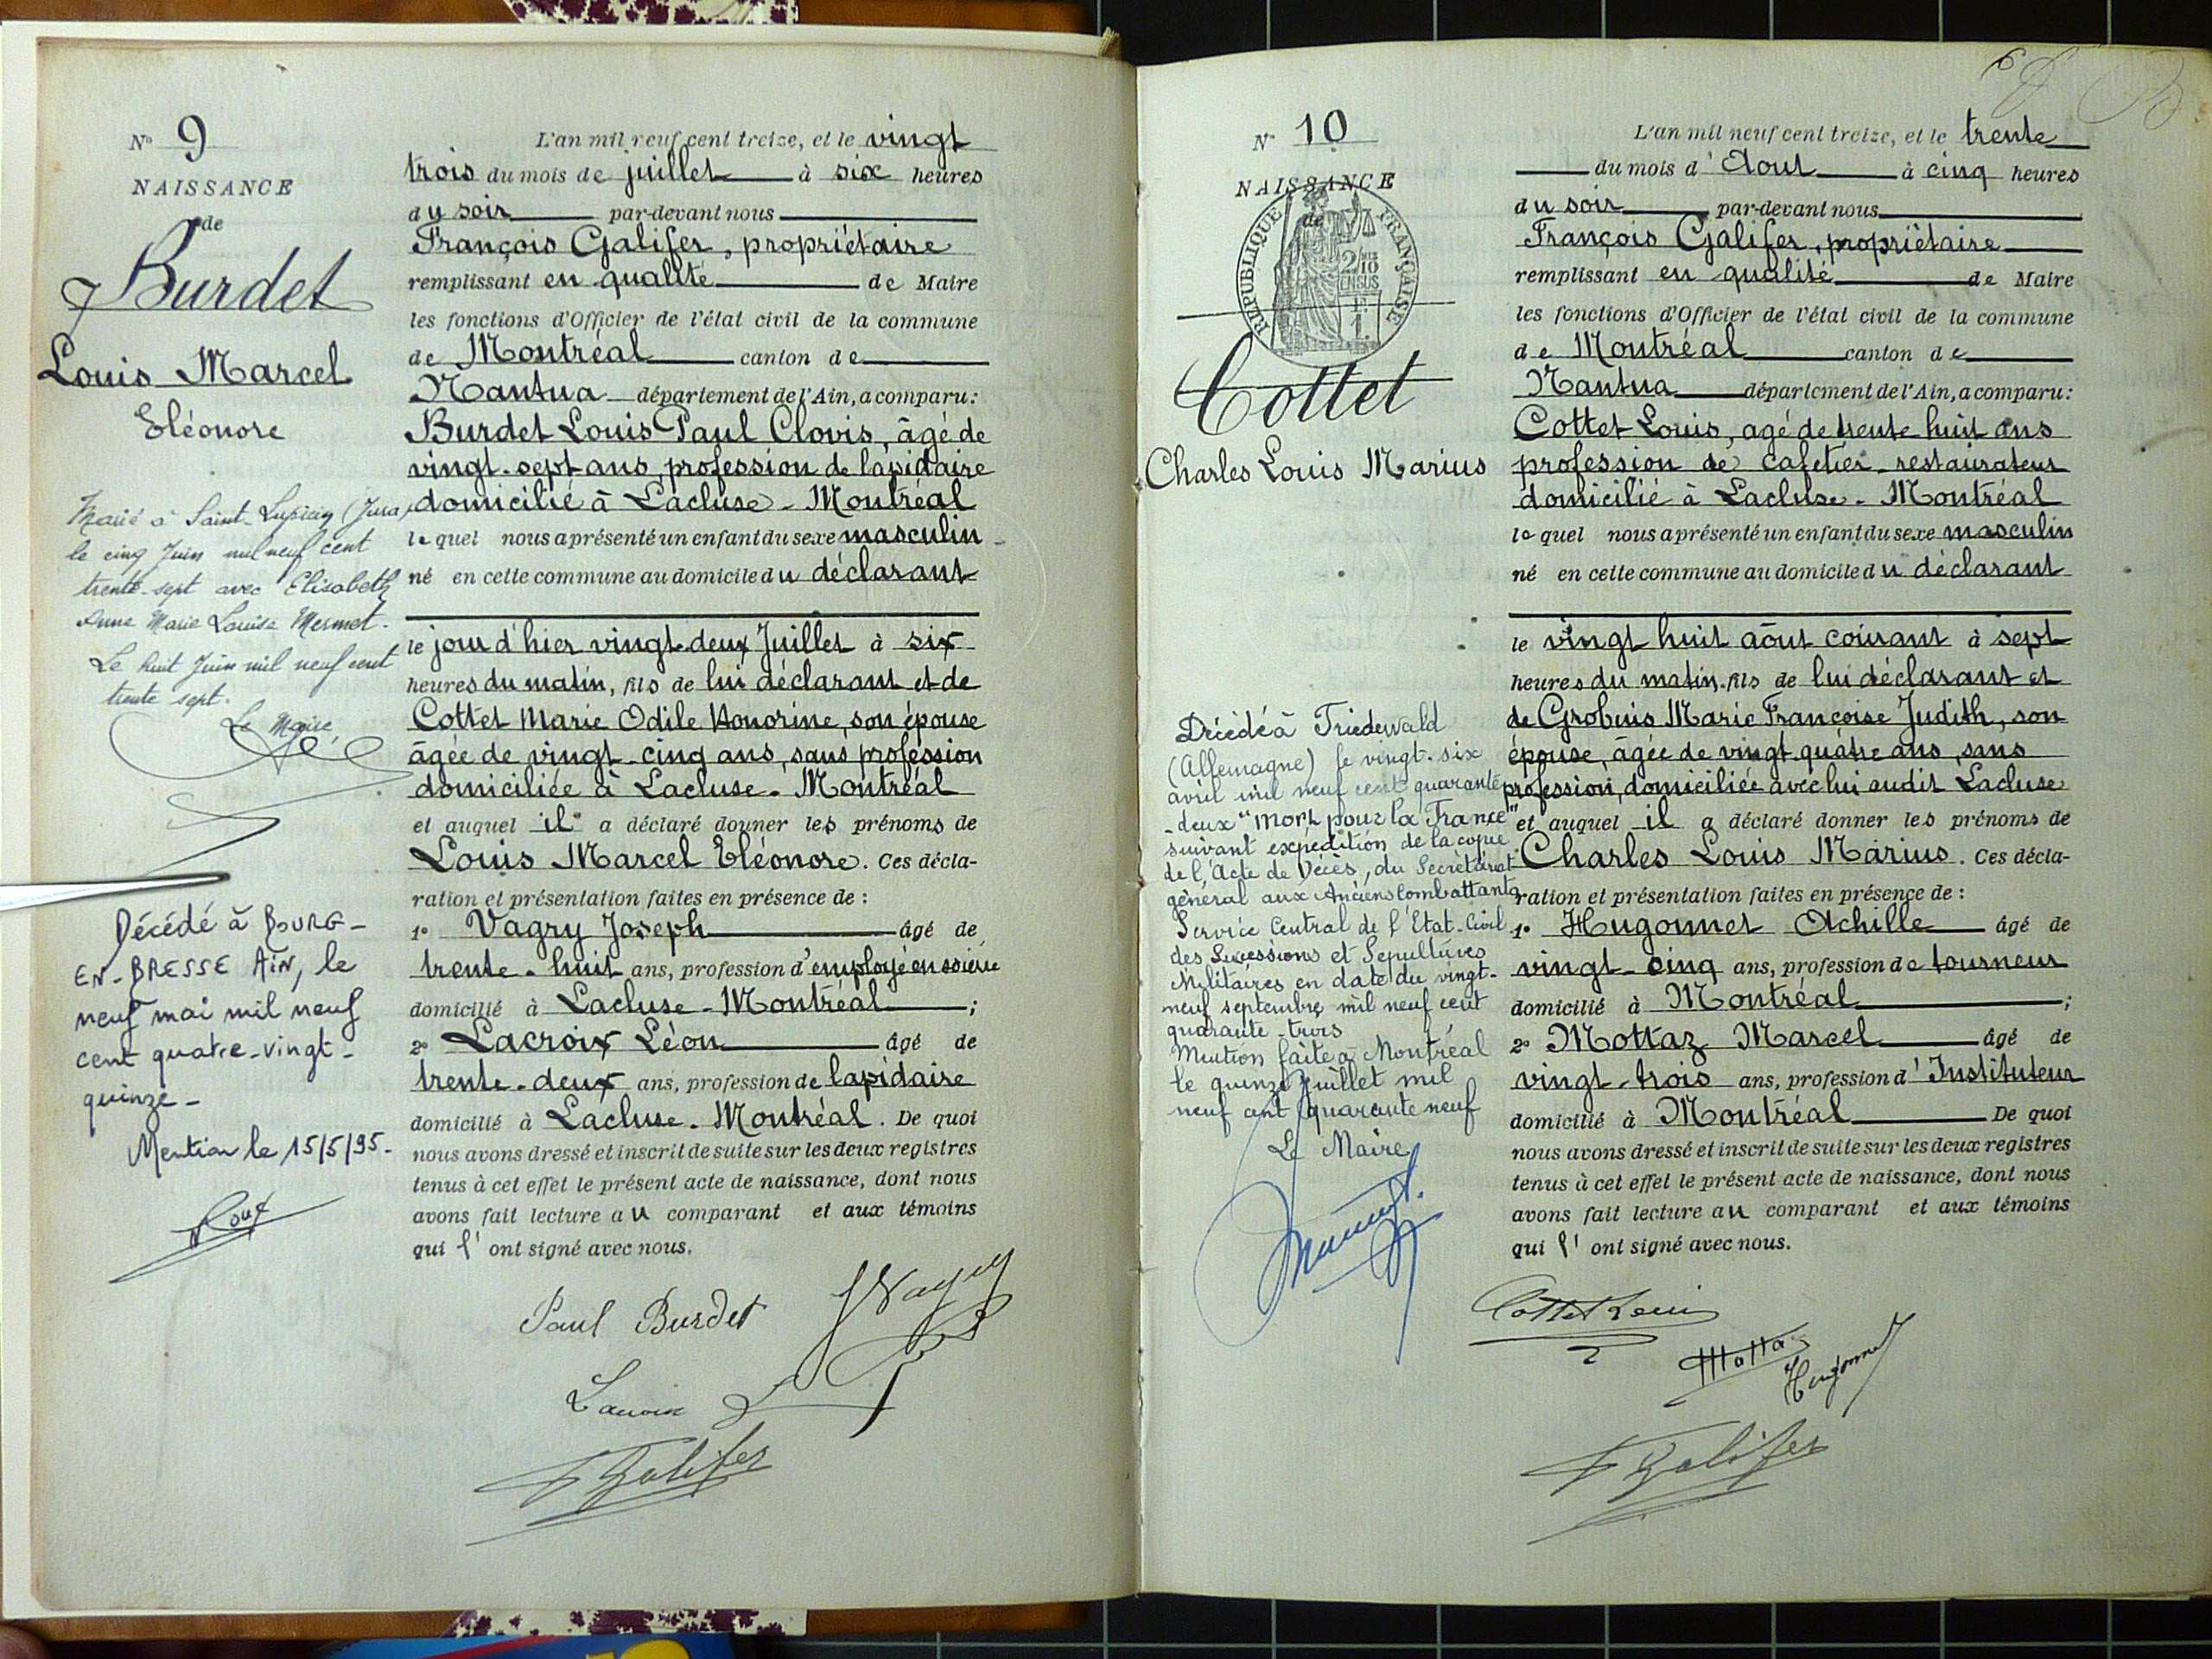 N° 9
NAISSANCE
de
Burdet
Louis Marcel
Eléonore
Marié à Saint-Lupicin (Jura)
le cinq Juin mil neuf cent
trente-sept avec Elisabeth
Anne Marie Louise Mermet.
Le huit Juin mil neuf cent
trente sept.
Le Maire,
Décédé à BOURG-
EN-BRESSE AIN, le
neuf mai mil neuf
cent quatre-vingt-
quinze-
Mention le 15/5/95.
Roux
L'an mil neuf cent treize, et le vingt
trois du mois de juillet à six heures
du soir par-devant nous
François Galifer, propriétaire
remplissant en qualité de Maire
les fonctions d'Officier de l'état civil de la commune
de Montréal canton de
Nantua département de l'Ain, a comparu:
Burdet Louis Paul Clovis, âgé de
vingt-sept ans, profession de lapidaire
domicilié à Lacluse-Montréal
lequel nous a présenté un enfant du sexe masculin
né en cette commune au domicile du déclarant
le jour d'hier vingt-deux Juillet à six
heures du matin, fils de lui déclarant et de
Cottet Marie Odile Honorine, son épouse
âgée de vingt-cinq ans, sans profession
domiciliée à Lacluse-Montréal
et auquel il a déclaré donner les prénoms de
Louis Marcel Eléonore. Ces décla-
ration et présentation faites en présence de :
1° Vagry Joseph âgé de
trente-huit ans, profession d'employé en soierie
domicilié à Lacluse-Montréal ;
2° Lacroix Léon âgé de
trente-deux ans, profession de lapidaire
domicilié à Lacluse-Montréal. De quoi
nous avons dressé et inscrit de suite sur les deux registres
tenus à cet effet le présent acte de naissance, dont nous
avons fait lecture au comparant et aux témoins
qui l'ont signé avec nous.
Paul Burdet
JVagry
Lacroix L
F Galifer
N° 10
NAISSANCE
de
RÉPUBLIQUE FRANÇAISE
2/10 EN SUS
1 F.
Cottet
Charles Louis Marius
Décédé à Friedewald
(Allemagne) le vingt-six
avril mil neuf cent quarante
-deux "Mort pour la France"
suivant expédition de la copie
de l'Acte de Décès, du Secrétariat
général aux Anciens Combattants
Service Central de l'Etat-Civil
des Successions et Sépultures
Militaires en date du vingt-
neuf septembre mil neuf cent
quarante-trois
Mention faite à Montréal
le quinze Juillet mil
neuf cent quarante neuf
Le Maire
L'an mil neuf cent treize, et le trente
du mois d'Aout à cinq heures
du soir par-devant nous
François Galifer, propriétaire
remplissant en qualité de Maire
les fonctions d'Officier de l'état civil de la commune
de Montréal canton de
Nantua département de l'Ain, a comparu:
Cottet Louis, agé de trente huit ans
profession de cafetier-restaurateur
domicilié à Lacluse-Montréal
lequel nous a présenté un enfant du sexe masculin
né en cette commune au domicile du déclarant
le vingt huit août courant à sept
heures du matin. fils de lui déclarant et
de Grobuis Marie Françoise Judith, son
épouse, âgée de vingt-quatre ans, sans
profession, domiciliée avec lui audit Lacluse
et auquel il a déclaré donner les prénoms de
Charles Louis Marius. Ces décla-
ration et présentation faites en présence de :
1° Hugonnet Achille âgé de
vingt-cinq ans, profession de tourneur
domicilié à Montréal ;
2° Mottaz Marcel âgé de
vingt-trois ans, profession d'Instituteur
domicilié à Montréal De quoi
nous avons dressé et inscrit de suite sur les deux registres
tenus à cet effet le présent acte de naissance, dont nous
avons fait lecture au comparant et aux témoins
qui l'ont signé avec nous.
Cottet Louis
Mottaz
Hugonnet
F Galifer